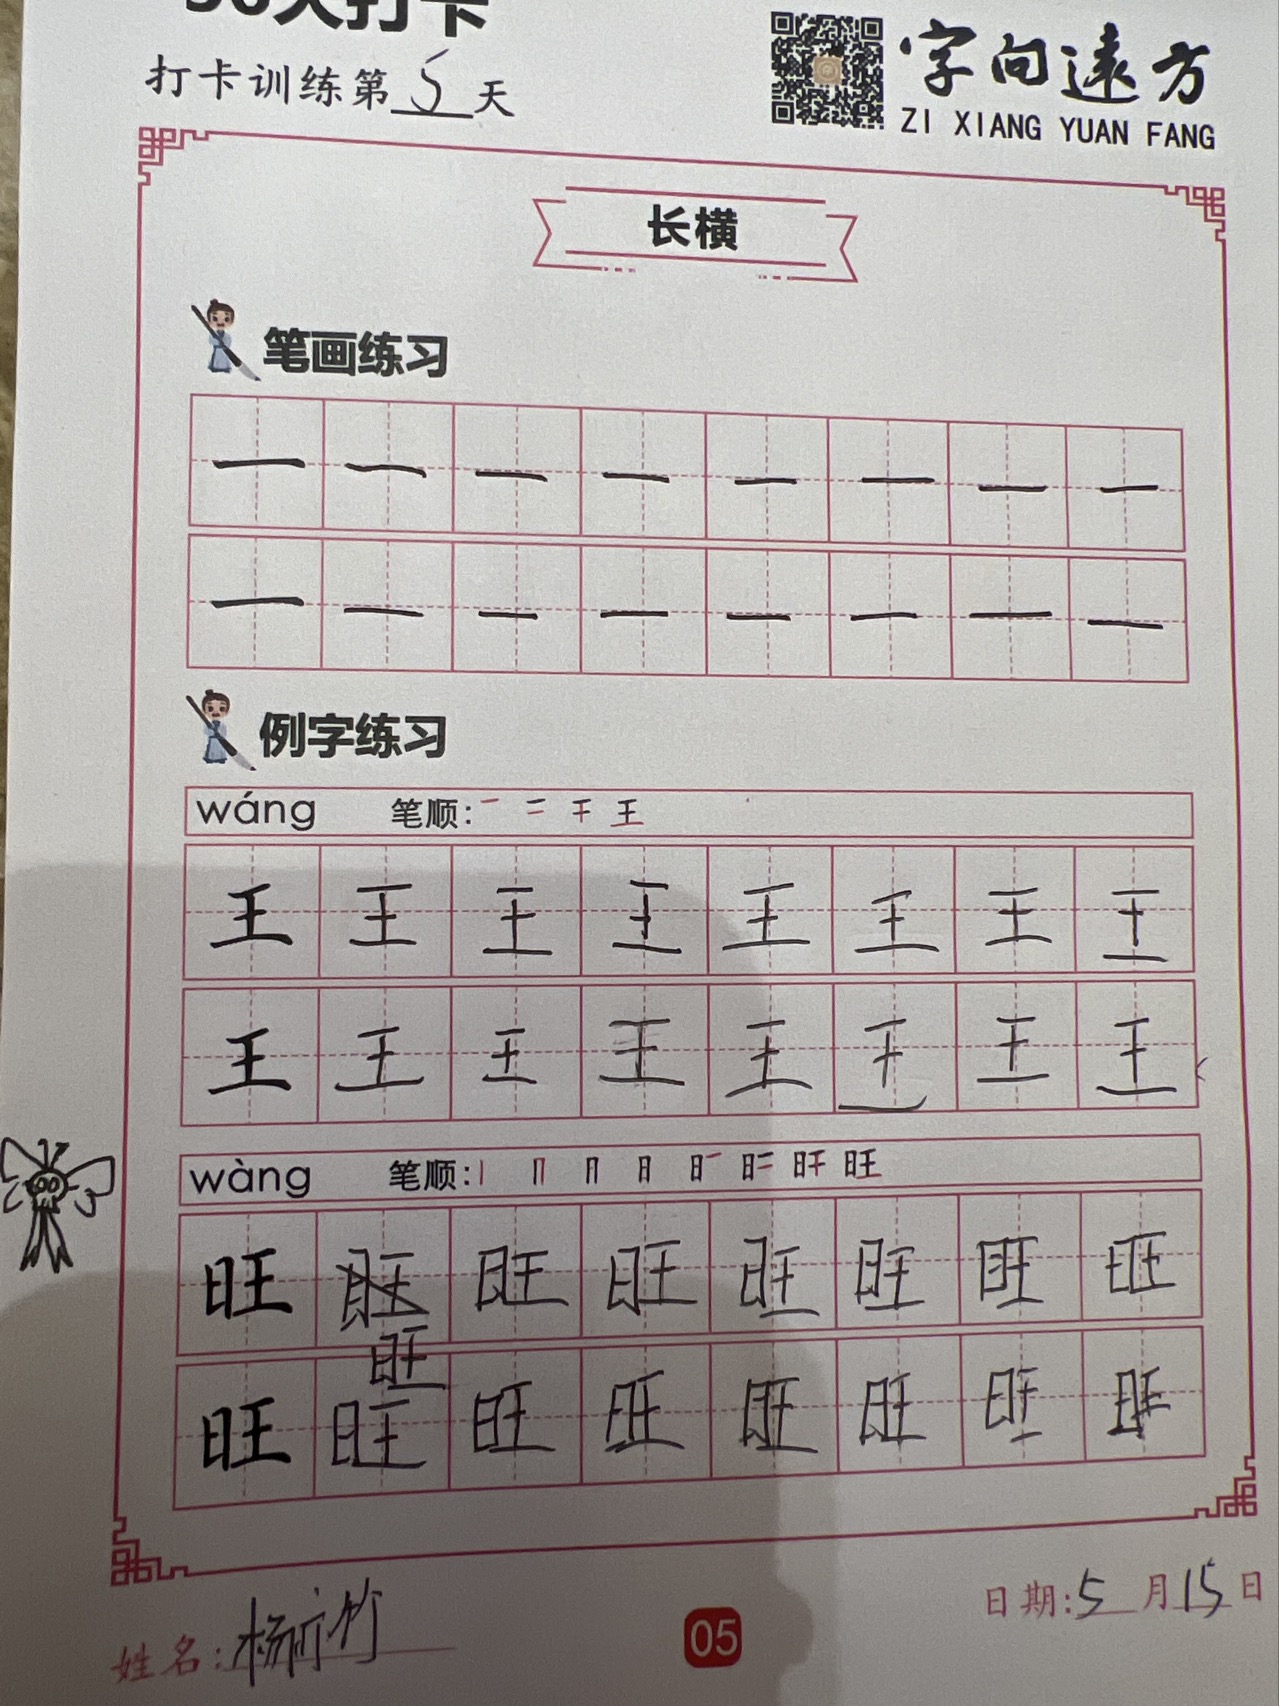 30天打卡
打卡训练第5天
字向远方
ZI XIANG YUAN FANG
长横
笔画练习
一 一 一 一 一 一 一 一
一 一 一 一 一 一 一 一
例字练习
wáng 笔顺:
王 王 王 王 王 王 王 王
王 王 王 王 王 王 王 王
wàng 笔顺:
旺 旺 旺 旺 旺 旺 旺 旺
旺
旺 旺 旺 旺 旺 旺 旺 旺
日期:5月15日
姓名:杨 竹
05